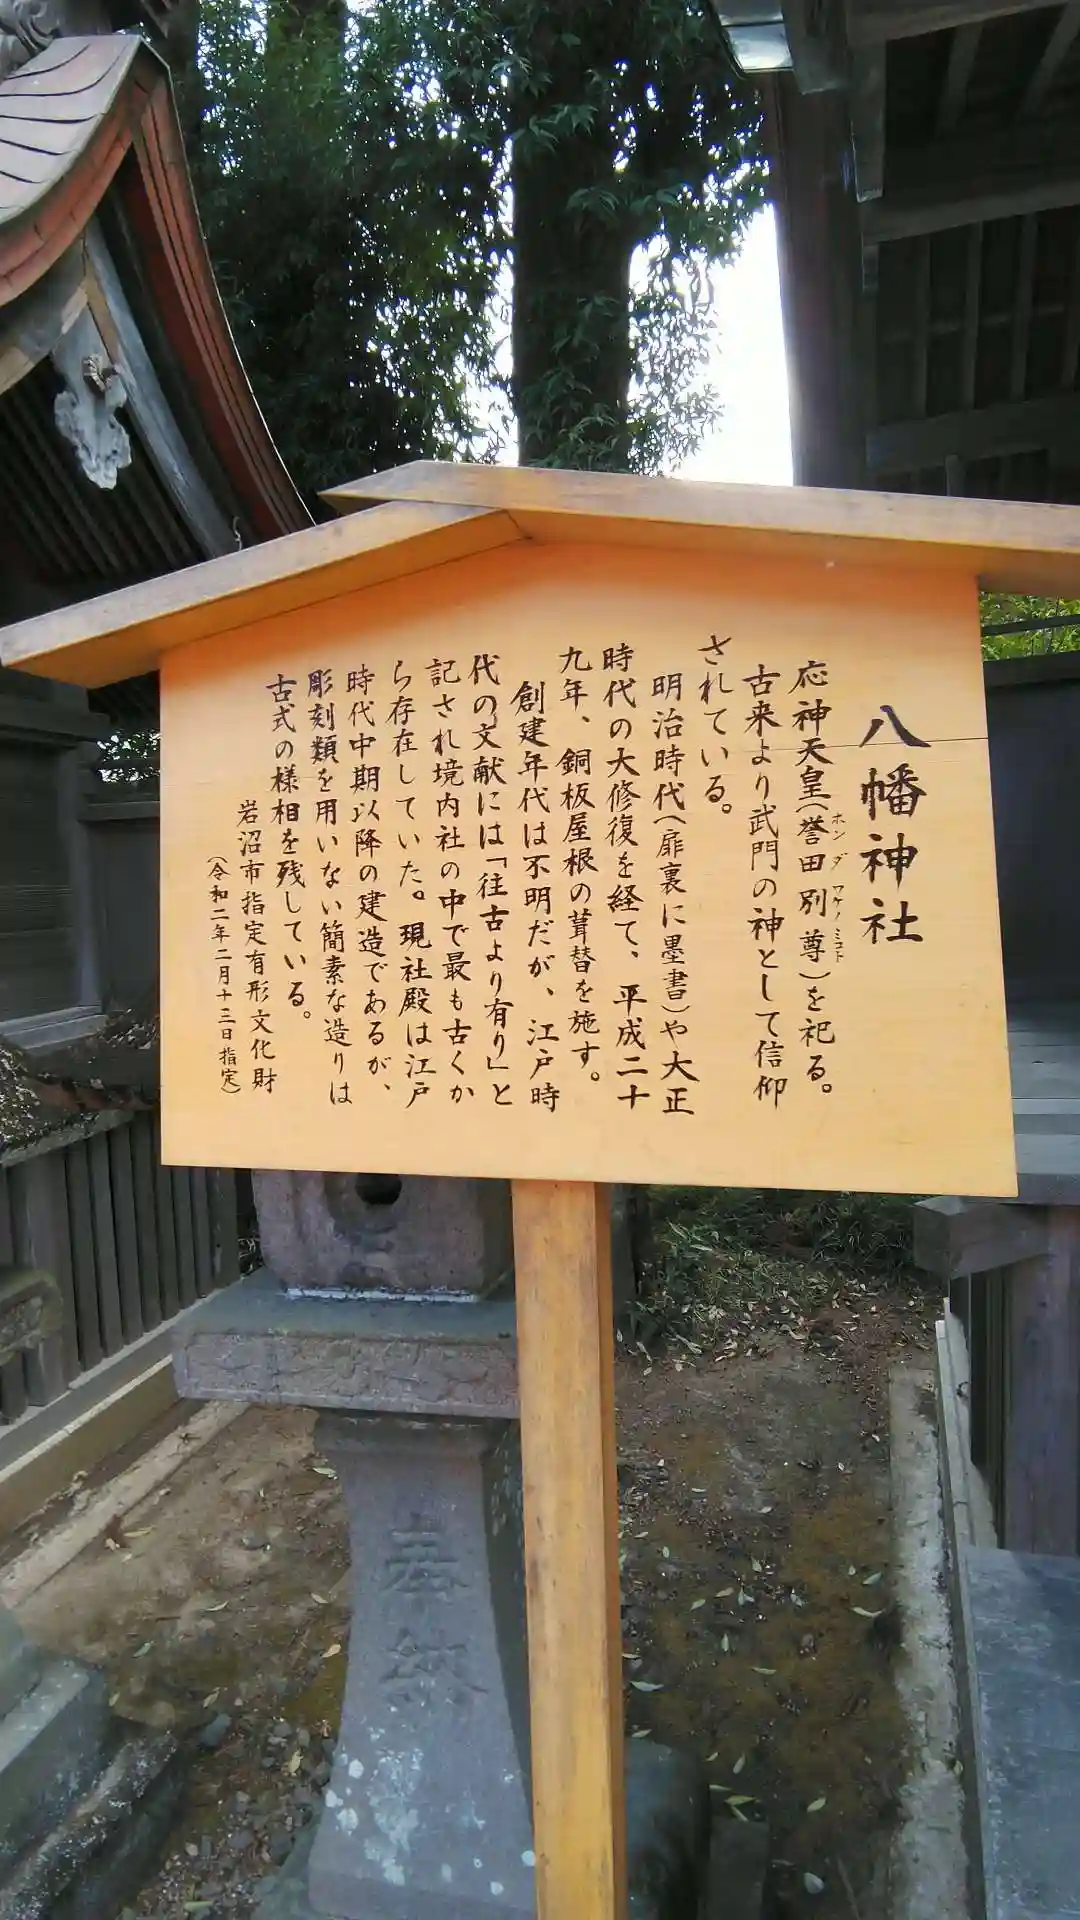 八幡神社
応神天皇(誉田別尊)を祀る。
ホンダワケノミコト
古来より武門の神として信仰
されている。
明治時代(扉裏に墨書)や大正
時代の大修復を経て、平成二十
九年、銅板屋根の葺替を施す。
創建年代は不明だが、江戸時
代の文献には「往古より有り」と
記され境内社の中で最も古くか
ら存在していた。現社殿は江戸
時代中期以降の建造であるが、
彫刻類を用いない簡素な造りは
古式の様相を残している。
岩沼市指定有形文化財
(令和二年二月十三日指定)
奉納